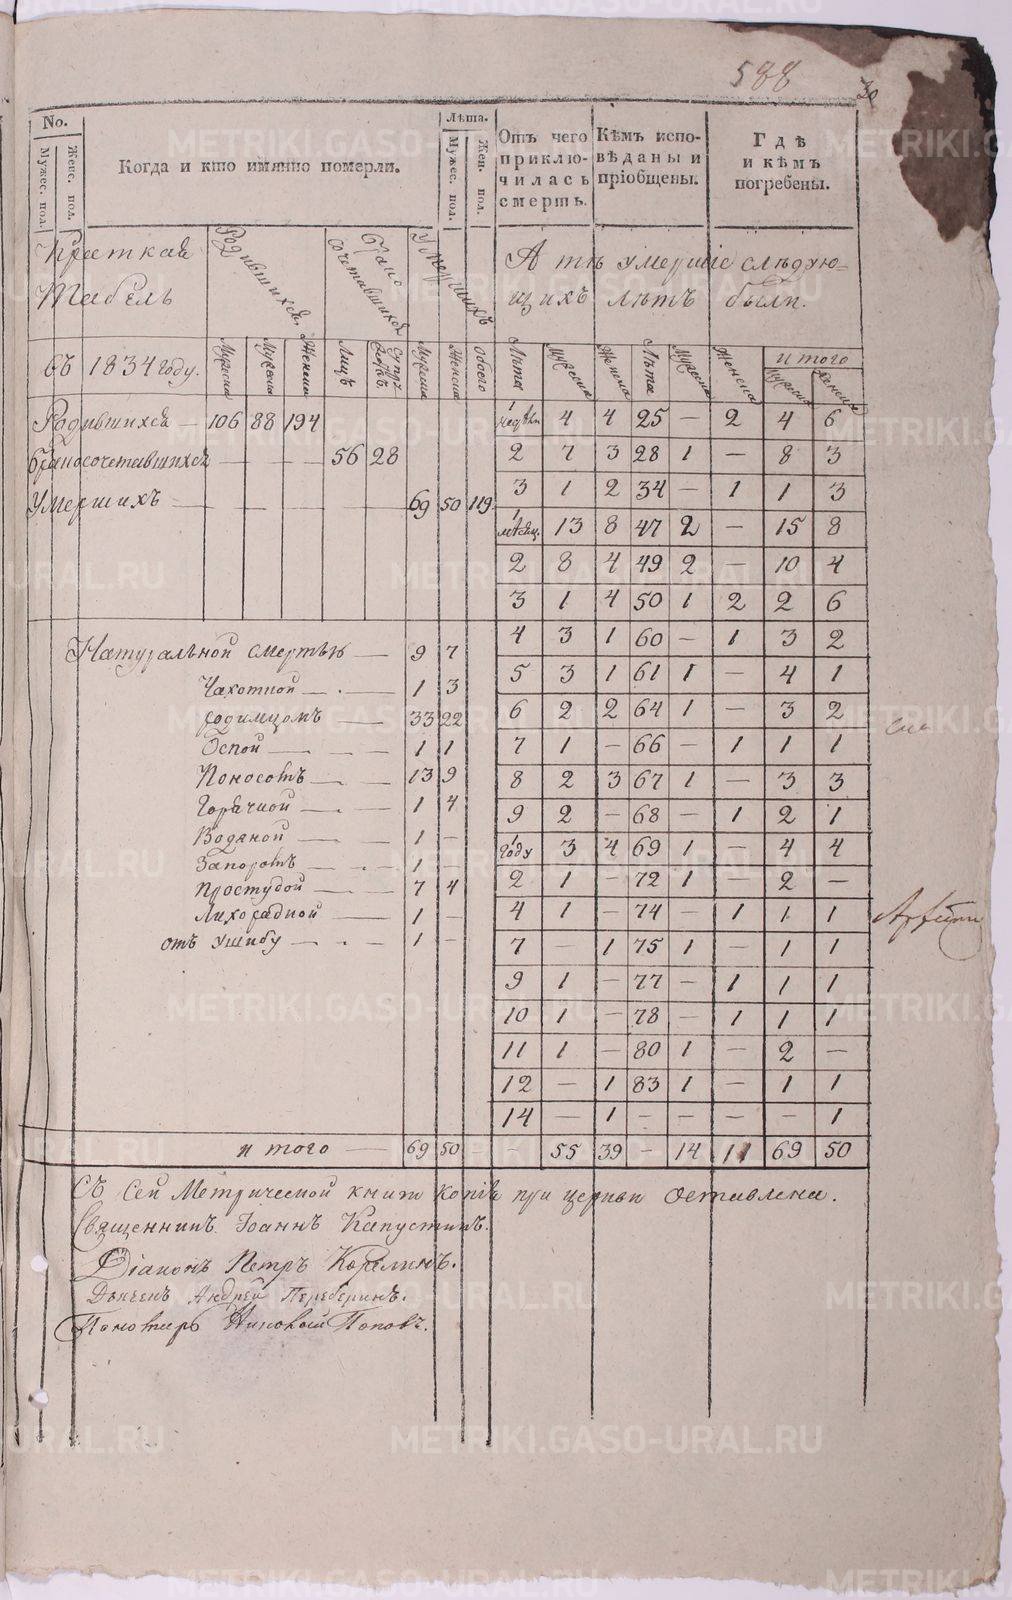 588
30
No.
Мужес. пол.
Женс. пол.
Когда и кто имянно померли.
Лѣта.
Мужес. пол.
Жен. пол.
Отъ чего приклю-чилась смерть.
Кѣмъ испо-вѣданы и пріобщены.
Гдѣ и кѣмъ погребены.
Краткая
Табель
Родившихся.
Брако сочетавшихся
Умершихъ
А тѣ умершіе слѣдую=
щихъ лѣтъ были.
Съ 1834 году.
Мужеска
Женска
Лицъ
Мужеска
Женска
Обоего
Лѣта
Мужеска
Женска
Лѣта
Мужеска
Женска
итого
Мужеска
Женска
Родившихся — 106 88 194
Бракосочетавшихся — — — 56 28
Умершихъ — — — 69 50 119
1 недѣли 4 4 25 — 2 4 6
2 7 3 28 1 — 8 3
3 1 2 34 — 1 1 3
1 мѣсяц. 13 8 47 2 — 15 8
2 8 4 49 2 — 10 4
3 1 4 50 1 2 2 6
4 3 1 60 — 1 3 2
5 3 1 61 1 — 4 1
6 2 2 64 1 — 3 2
7 1 — 66 — 1 1 1
8 2 3 67 1 — 3 3
9 2 — 68 — 1 2 1
1 году 3 4 69 1 — 4 4
2 1 — 72 1 — 2 —
4 1 — 74 — 1 1 1
7 — 1 75 1 — 1 1
9 1 — 77 — 1 1 1
10 1 — 78 — 1 1 1
11 1 — 80 1 — 2 —
12 — 1 83 1 — 1 1
14 — 1 — — — — 1
— 55 39 — 14 11 69 50
Натуральной смертью — 9 7
Чахоткой — 1 3
родимцомъ — 33 22
Оспой — 1 1
Поносомъ — 13 9
Горячкой — 1 4
Водяной — 1 —
Запоромъ — 1
Простудой — 7 4
Лихорадкой — 1 —
отъ ушибу — 1 —
итого — 69 50
Съ сей Метрической книги копія при церкви оставлена.
Священникъ Іоаннъ Капустинъ.
Діаконъ Петръ Карелинъ.
Дьячекъ Андрей Переберинъ.
Пономарь Николай Поповъ.
METRIKI.GASO-URAL.RU